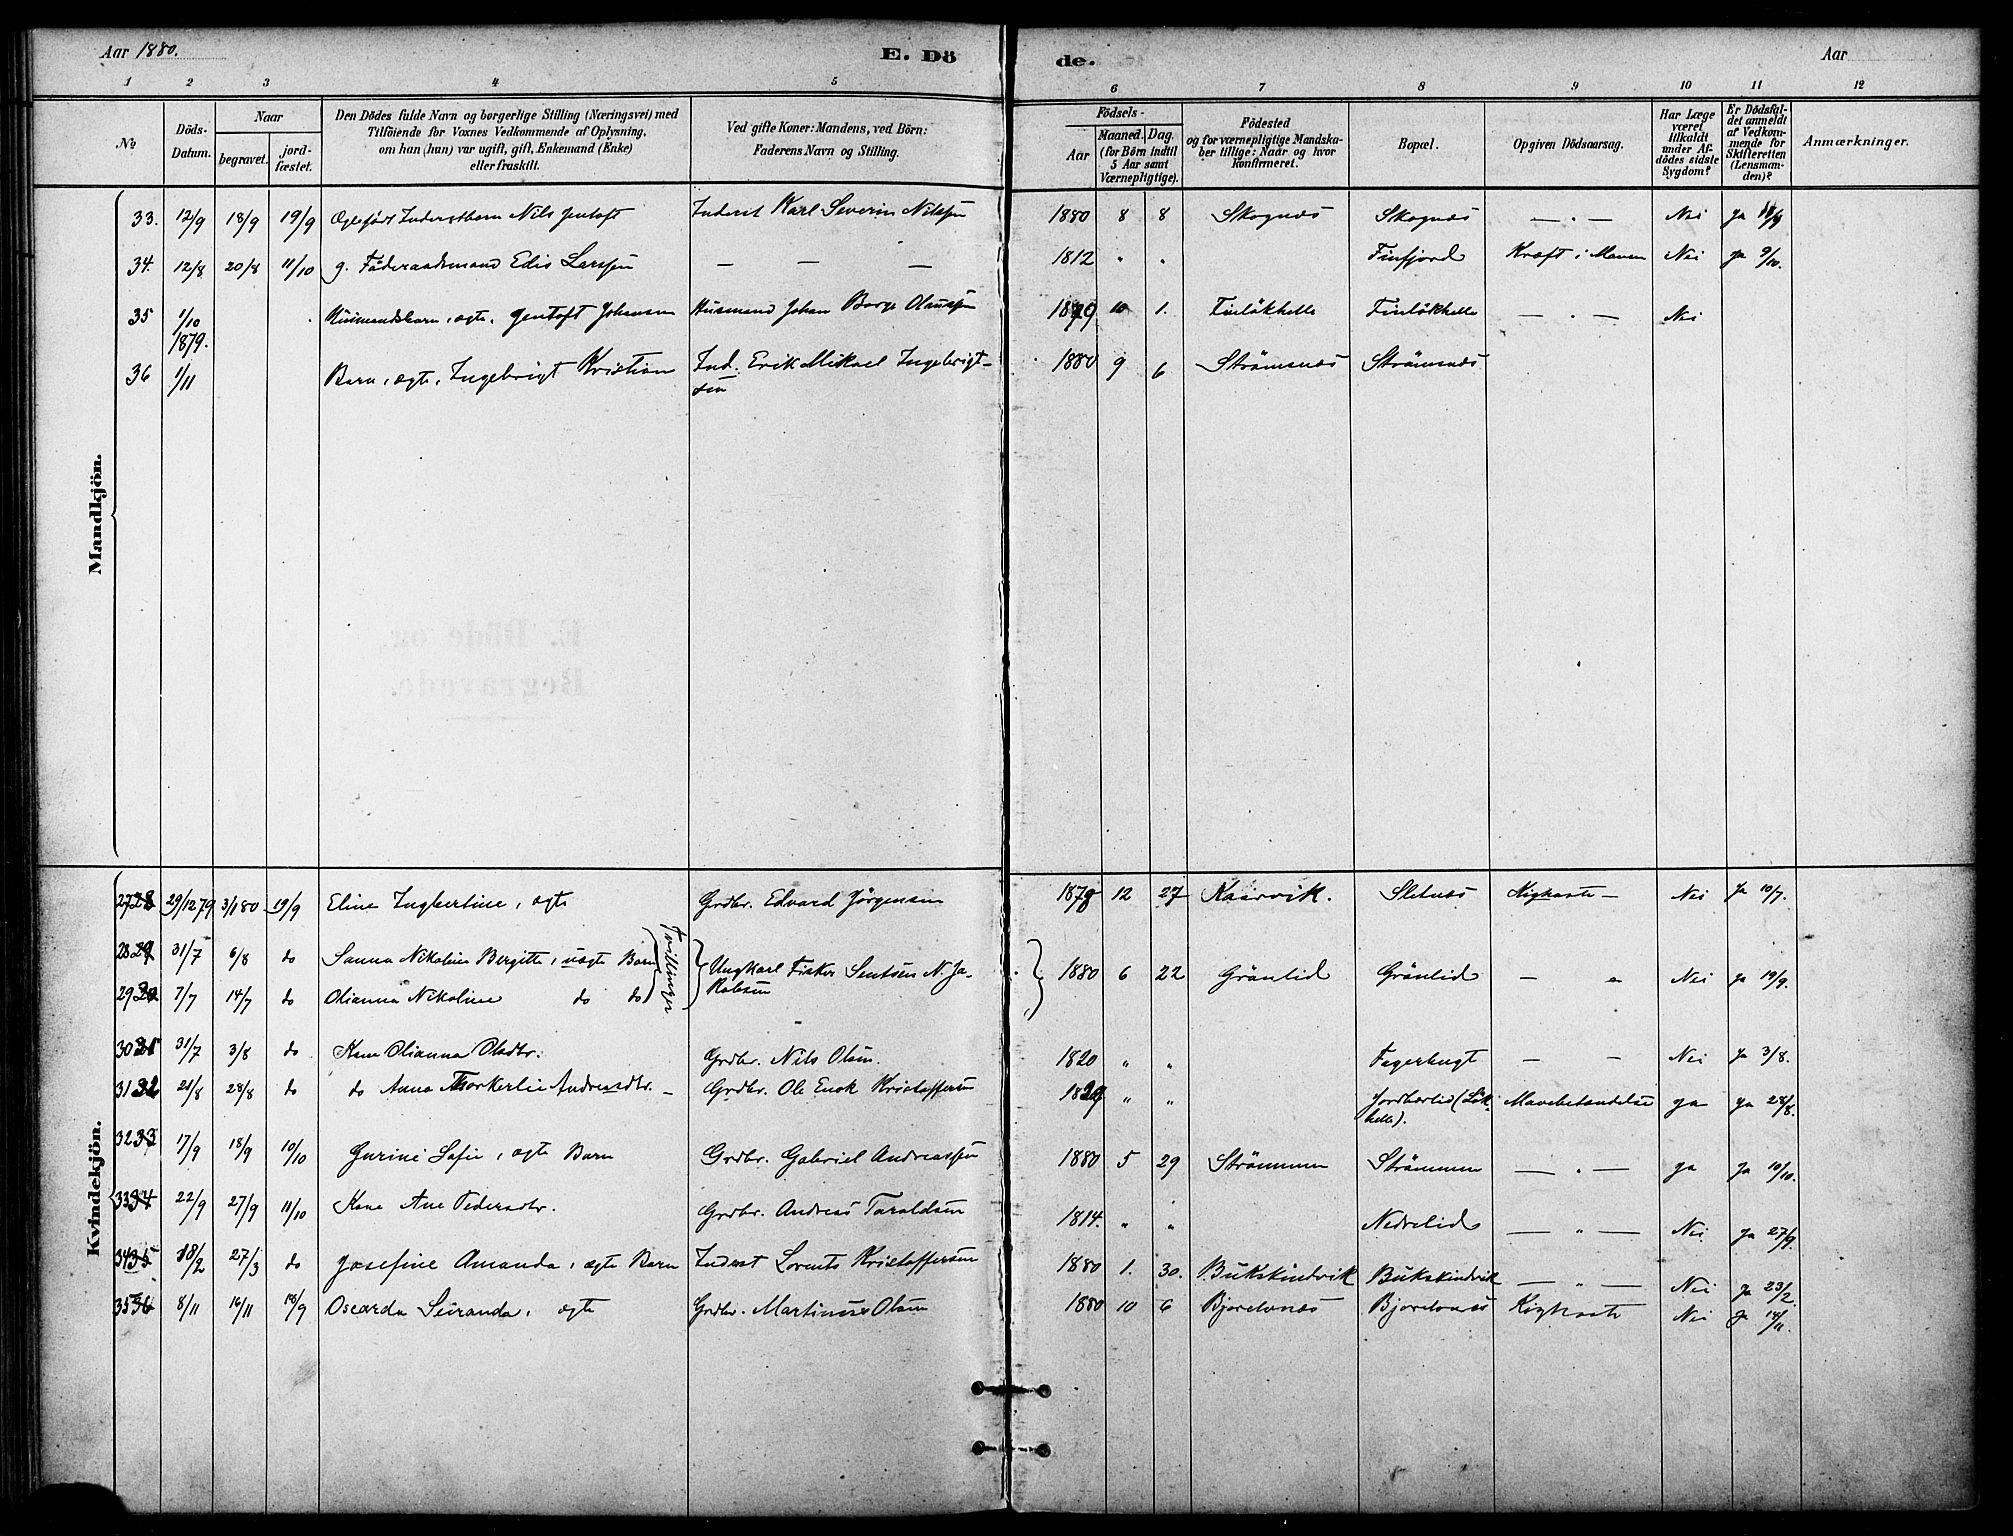 Aar 1880.
E. Dö
de.
Aar
1 2 3 4 5 6 7 8 9 10 11 12
No
Döds-
Datum.
Naar
begravet.
jord-
fæstet.
Den Dödes fulde Navn og borgerlige Stilling (Næringsvei) med
Tilföiende for Voxnes Vedkommende af Oplysning,
om han (hun) var ugift, gift, Enkemand (Enke)
eller fraskilt.
Ved gifte Koner: Mandens, ved Börn:
Faderens Navn og Stilling.
Födsels-
Aar
Maaned. Dag.
(for Börn indtil
5 Aar samt
Værnepligtige).
Födested
og for værnepligtige Mandska-
ber tillige: Naar og hvor
konfirmeret.
Bopæl.
Opgiven Dödsaarsag.
Har Læge
været
tilkaldt
under Af-
dödes sidste
Sygdom?
Er Dödsfal-
det anmeldt
af Vedkom-
mende for
Skifteretten
(Lensman-
den)?
Anmærkninger.
Mandkjön.
33. 12/9 18/9 19/9 Ægtefödt Inderstbarn Nils Gentoft Inderst Karl Severin Nilssen 1880 8 8 Skognæs Skognæs — " — Nei Ja
34. 12/8 20/8 11/10 g. Föderaadsmand Edis Larssen — — — 1812 " " Finfjord Kræft i Maven Nei ja 9/10.
35 1/10 1879. Husmandsbarn, ægte, Gentoft Johansen Husmand Johan Borge Olaussen 1879 10 1. Finlökhelle Finlökhelle — " — Nei
36 1/11 Barn, ægte, Ingebrigt Kristian Ind. Erik Mikael Ingebrigt-
sen 1880 9 6 Strömsnæs Strömsnæs
Kvindekjön.
27 28 29/12 79 3/1 80 19/9 Eline Ingbertine, ægte Grdbr. Edvard Jörgensen 1879 12 27 Kaarvik. Sletnæs Kighoste — Nei Ja 10/7.
28 29 31/7 6/8 do Sanna Nikoline Bergitte, uægte Barn Tvillinger Ungkarl Fisker N. Ja-
kobsen 1880 6 22 Grönlid Grönlid — " Nei ja 19/9.
29 30 7/7 14/7 do Olianna Nikoline do do
30 31 31/7 3/8 do Kone Olianna Olsdtr. Grdbr. Nils Olsen. 1820 " " Fagerbugt — — Nei Ja 3/8.
31 32 21/8 28/8 do do Anna Andreasdtr. — Grdbr. Ole Enok Kristoffersen 1829 " " Jordbærlid (Lök-
helle). Mavebetændelse ja ja 28/8.
32 33 17/9 18/9 10/10 Gurine Sofie, ægte Barn Grdbr. Gabriel Andreassen 1880 5 29 Strömmen Strömmen — " — ja Ja 10/10.
33 34 22/9 27/9 11/10 Kone Ane Pedersdtr. Grdbr. Andreas Taraldsen 1814. " " Nedrelid — " — Nei Ja 27/9.
34 35 18/2 27/3 do Josefine Amanda, ægte Barn Inderst Lorents Kristoffersen 1880 1. 30. Bukskindvik Bukskindvik — " — Nei Ja 23/2.
35 36 8/11 16/11 18/9 Oscarda Seüranda, ægte Grdbr. Martinus Olsen 1880 10 6 Bjorelvnæs Bjorelvnæs Kighoste Nei Ja 14/11.